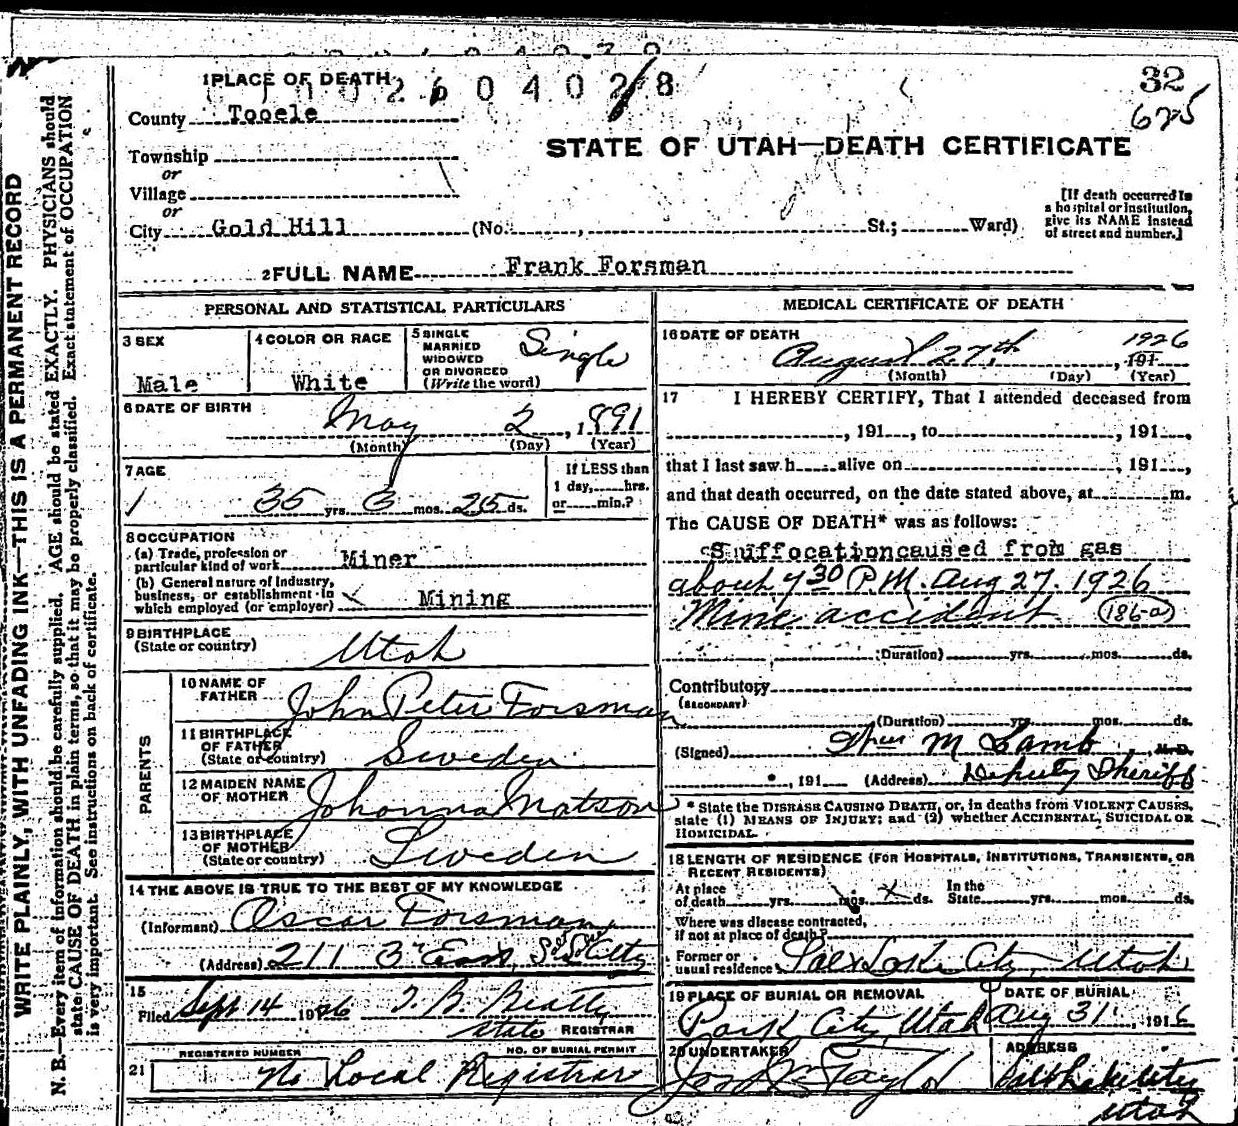 32
625
1 PLACE OF DEATH
2604028
County Tooele
STATE OF UTAH—DEATH CERTIFICATE
Township
or
Village
or
City Gold Hill (No. , St.; Ward)
[If death occurred in
a hospital or institution,
give its NAME instead
of street and number.]
2 FULL NAME Frank Forsman
PERSONAL AND STATISTICAL PARTICULARS
3 SEX
Male
4 COLOR OR RACE
White
5 SINGLE
MARRIED
WIDOWED
OR DIVORCED
(Write the word)
Single
6 DATE OF BIRTH
May 2, 1891
(Month) (Day) (Year)
7 AGE
35 yrs. 3 mos. 25 ds.
If LESS than
1 day, hrs.
or min.?
8 OCCUPATION
(a) Trade, profession or
particular kind of work Miner
(b) General nature of Industry,
business, or establishment in
which employed (or employer) Mining
9 BIRTHPLACE
(State or country) Utah
PARENTS
10 NAME OF
FATHER John Peter Forsman
11 BIRTHPLACE
OF FATHER
(State or country) Sweden
12 MAIDEN NAME
OF MOTHER Johanna Matson
13 BIRTHPLACE
OF MOTHER
(State or country) Sweden
14 THE ABOVE IS TRUE TO THE BEST OF MY KNOWLEDGE
(Informant) Oscar Forsman
(Address) 211 3rd East, Salt Lake City
15
Filed Sept 14 1926 T. B. Beatty
State REGISTRAR
REGISTERED NUMBER NO. OF BURIAL PERMIT
21 No Local Registrar
MEDICAL CERTIFICATE OF DEATH
16 DATE OF DEATH
August 27th, 191 1926
(Month) (Day) (Year)
17 I HEREBY CERTIFY, That I attended deceased from
, 191 , to , 191 ,
that I last saw h alive on , 191 ,
and that death occurred, on the date stated above, at m.
The CAUSE OF DEATH* was as follows:
Suffocation caused from gas
about 7 30 P.M. Aug 27. 1926
Mine accident (186-a)
(Duration) yrs. mos. ds.
Contributory
(SECONDARY)
(Duration) yrs. mos. ds.
(Signed) M Lamb, M.D.
, 191 (Address) Deputy Sheriff
* State the DISEASE CAUSING DEATH, or, in deaths from VIOLENT CAUSES,
state (1) MEANS OF INJURY; and (2) whether ACCIDENTAL, SUICIDAL OR
HOMICIDAL.
18 LENGTH OF RESIDENCE (FOR HOSPITALS, INSTITUTIONS, TRANSIENTS, OR
RECENT RESIDENTS)
At place
of death yrs. mos. x ds.
In the
State yrs. mos. ds.
Where was disease contracted,
if not at place of death?
Former or
usual residence Salt Lake City, Utah
19 PLACE OF BURIAL OR REMOVAL
Park City, Utah
DATE OF BURIAL
Aug 31, 1916
20 UNDERTAKER
Taylor
ADDRESS
Salt Lake City
Utah
WRITE PLAINLY, WITH UNFADING INK—THIS IS A PERMANENT RECORD
N. B.—Every item of information should be carefully supplied. AGE should be stated EXACTLY. PHYSICIANS should
state CAUSE OF DEATH in plain terms, so that it may be properly classified. Exact statement of OCCUPATION
is very important. See instructions on back of certificate.